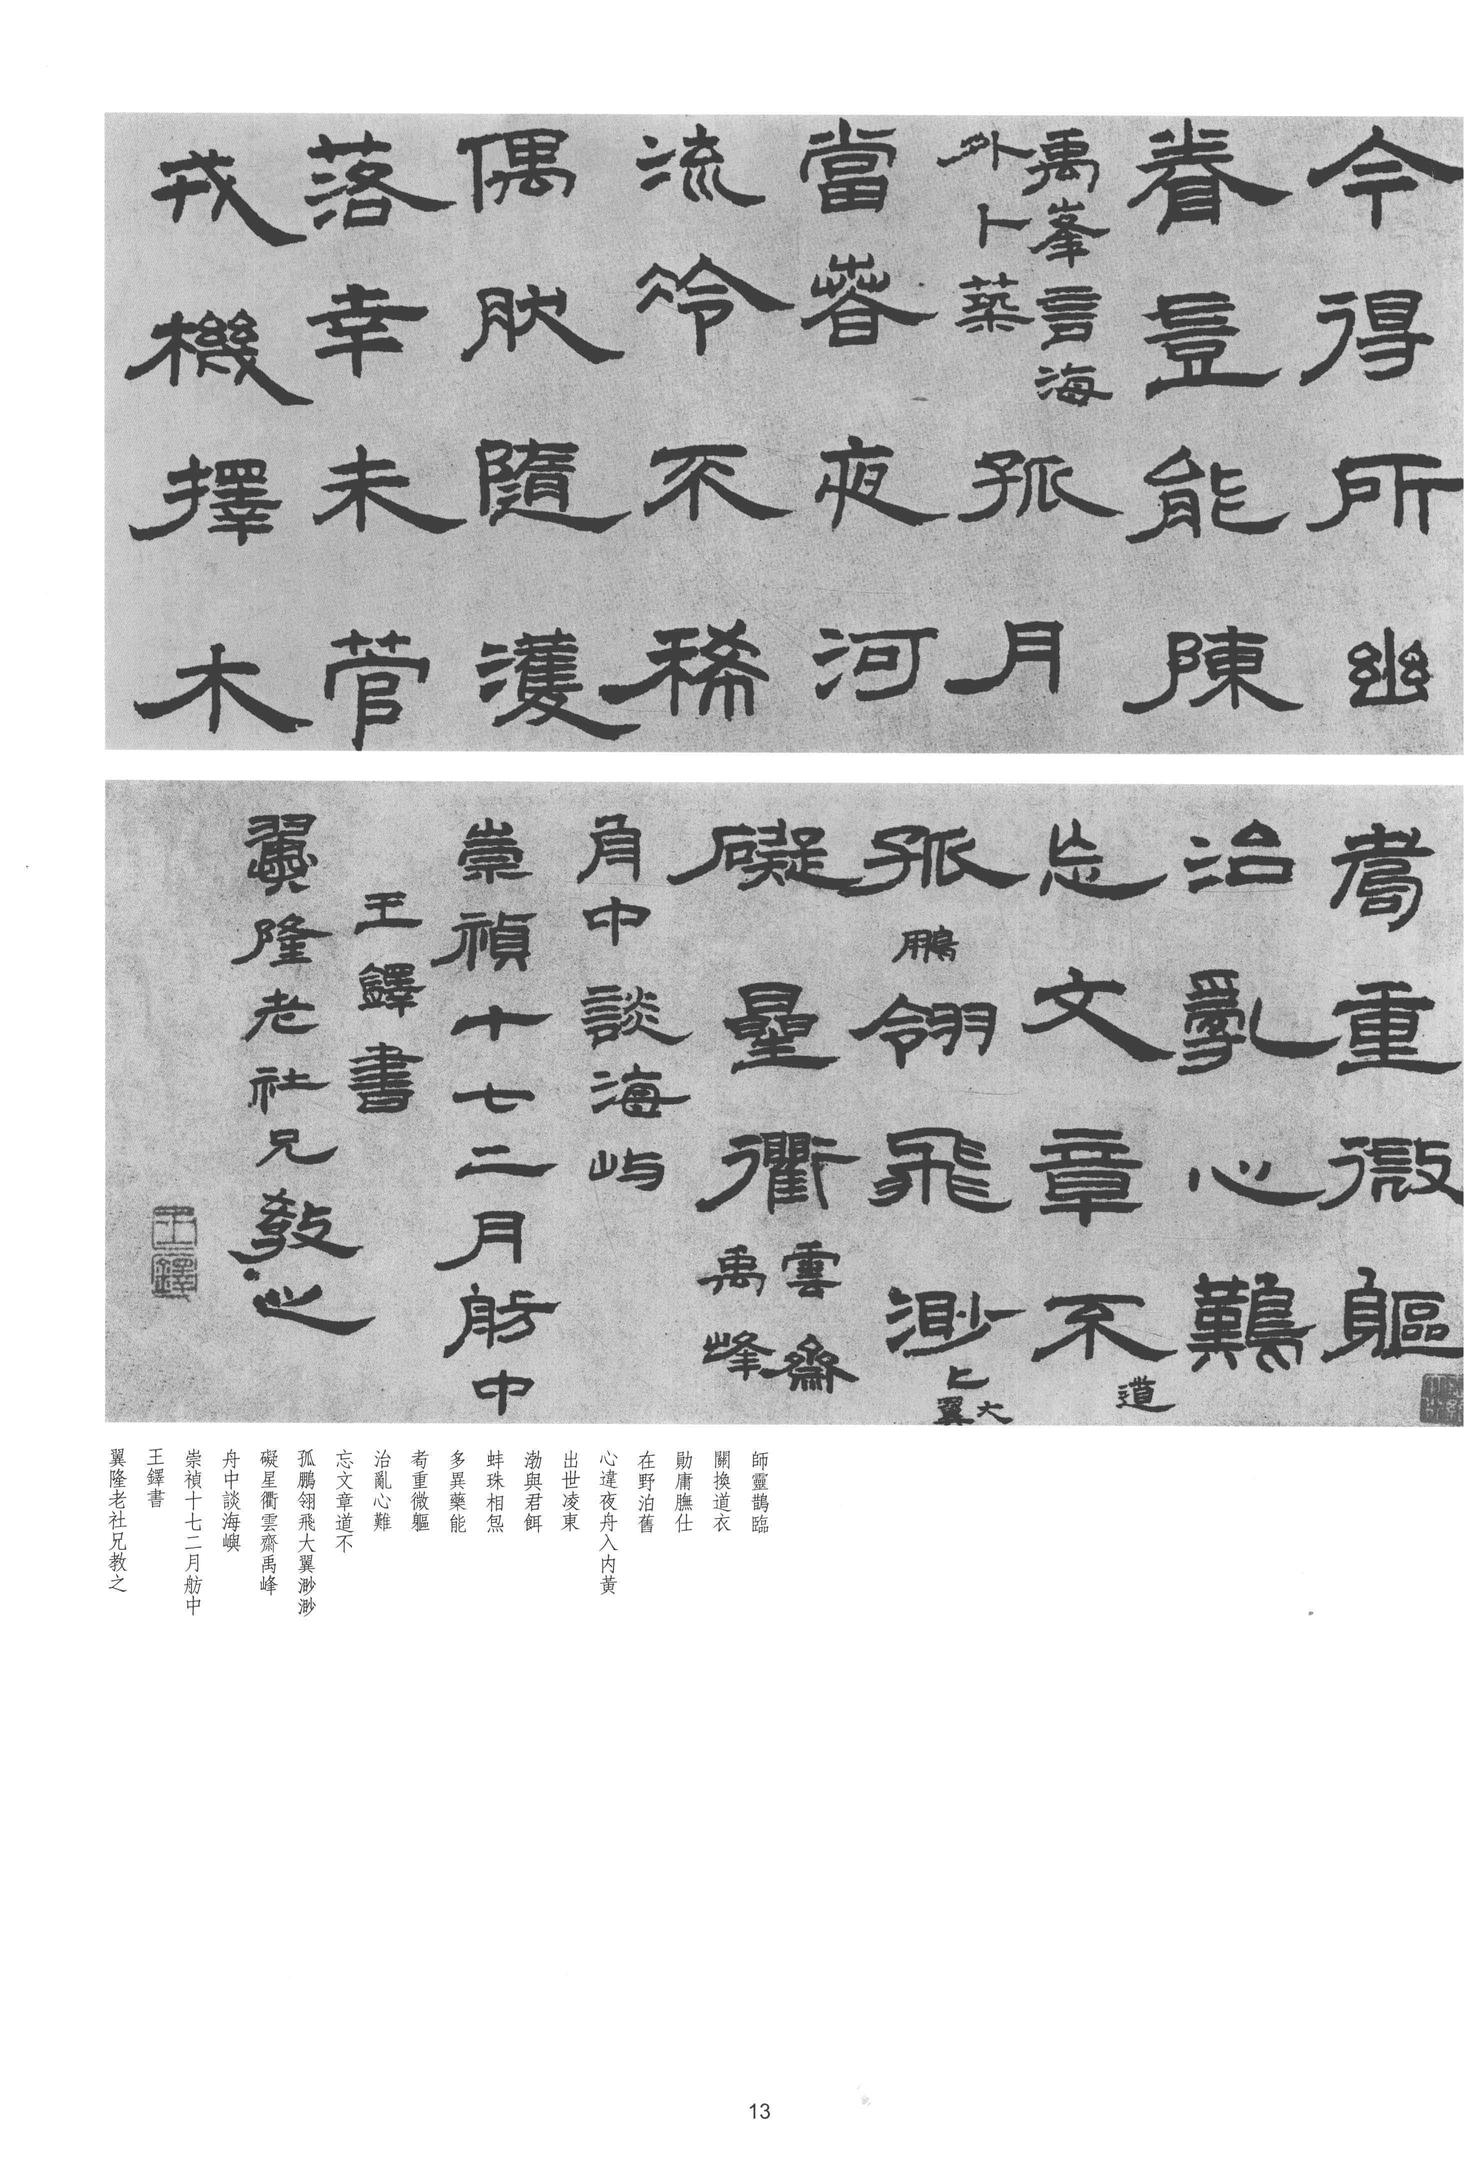 今得所幽
眷豈能陳
禹峯言海
外卜築
孤月
當蓉夜河
流冷不稀
偶耽隨濩
落幸未菅
戎機擇木
耉重微軀
治亂心難
忘文章不
道
孤鵬翎飛渺
大翼
礙星衢
雲齋
禹峰
舟中談海嶼
崇禎十七二月舫中
王鐸書
翼隆老社兄教之
王鐸
師靈鵲臨
關換道衣
勛庸膴仕
在野泊舊
心違夜舟入内黃
出世凌東
渤與君餌
蚌珠相炰
多異藥能
耉重微軀
治亂心難
忘文章道不
孤鵬翎飛大翼渺渺
礙星衢雲齋禹峰
舟中談海嶼
崇禎十七二月舫中
王鐸書
翼隆老社兄教之
13